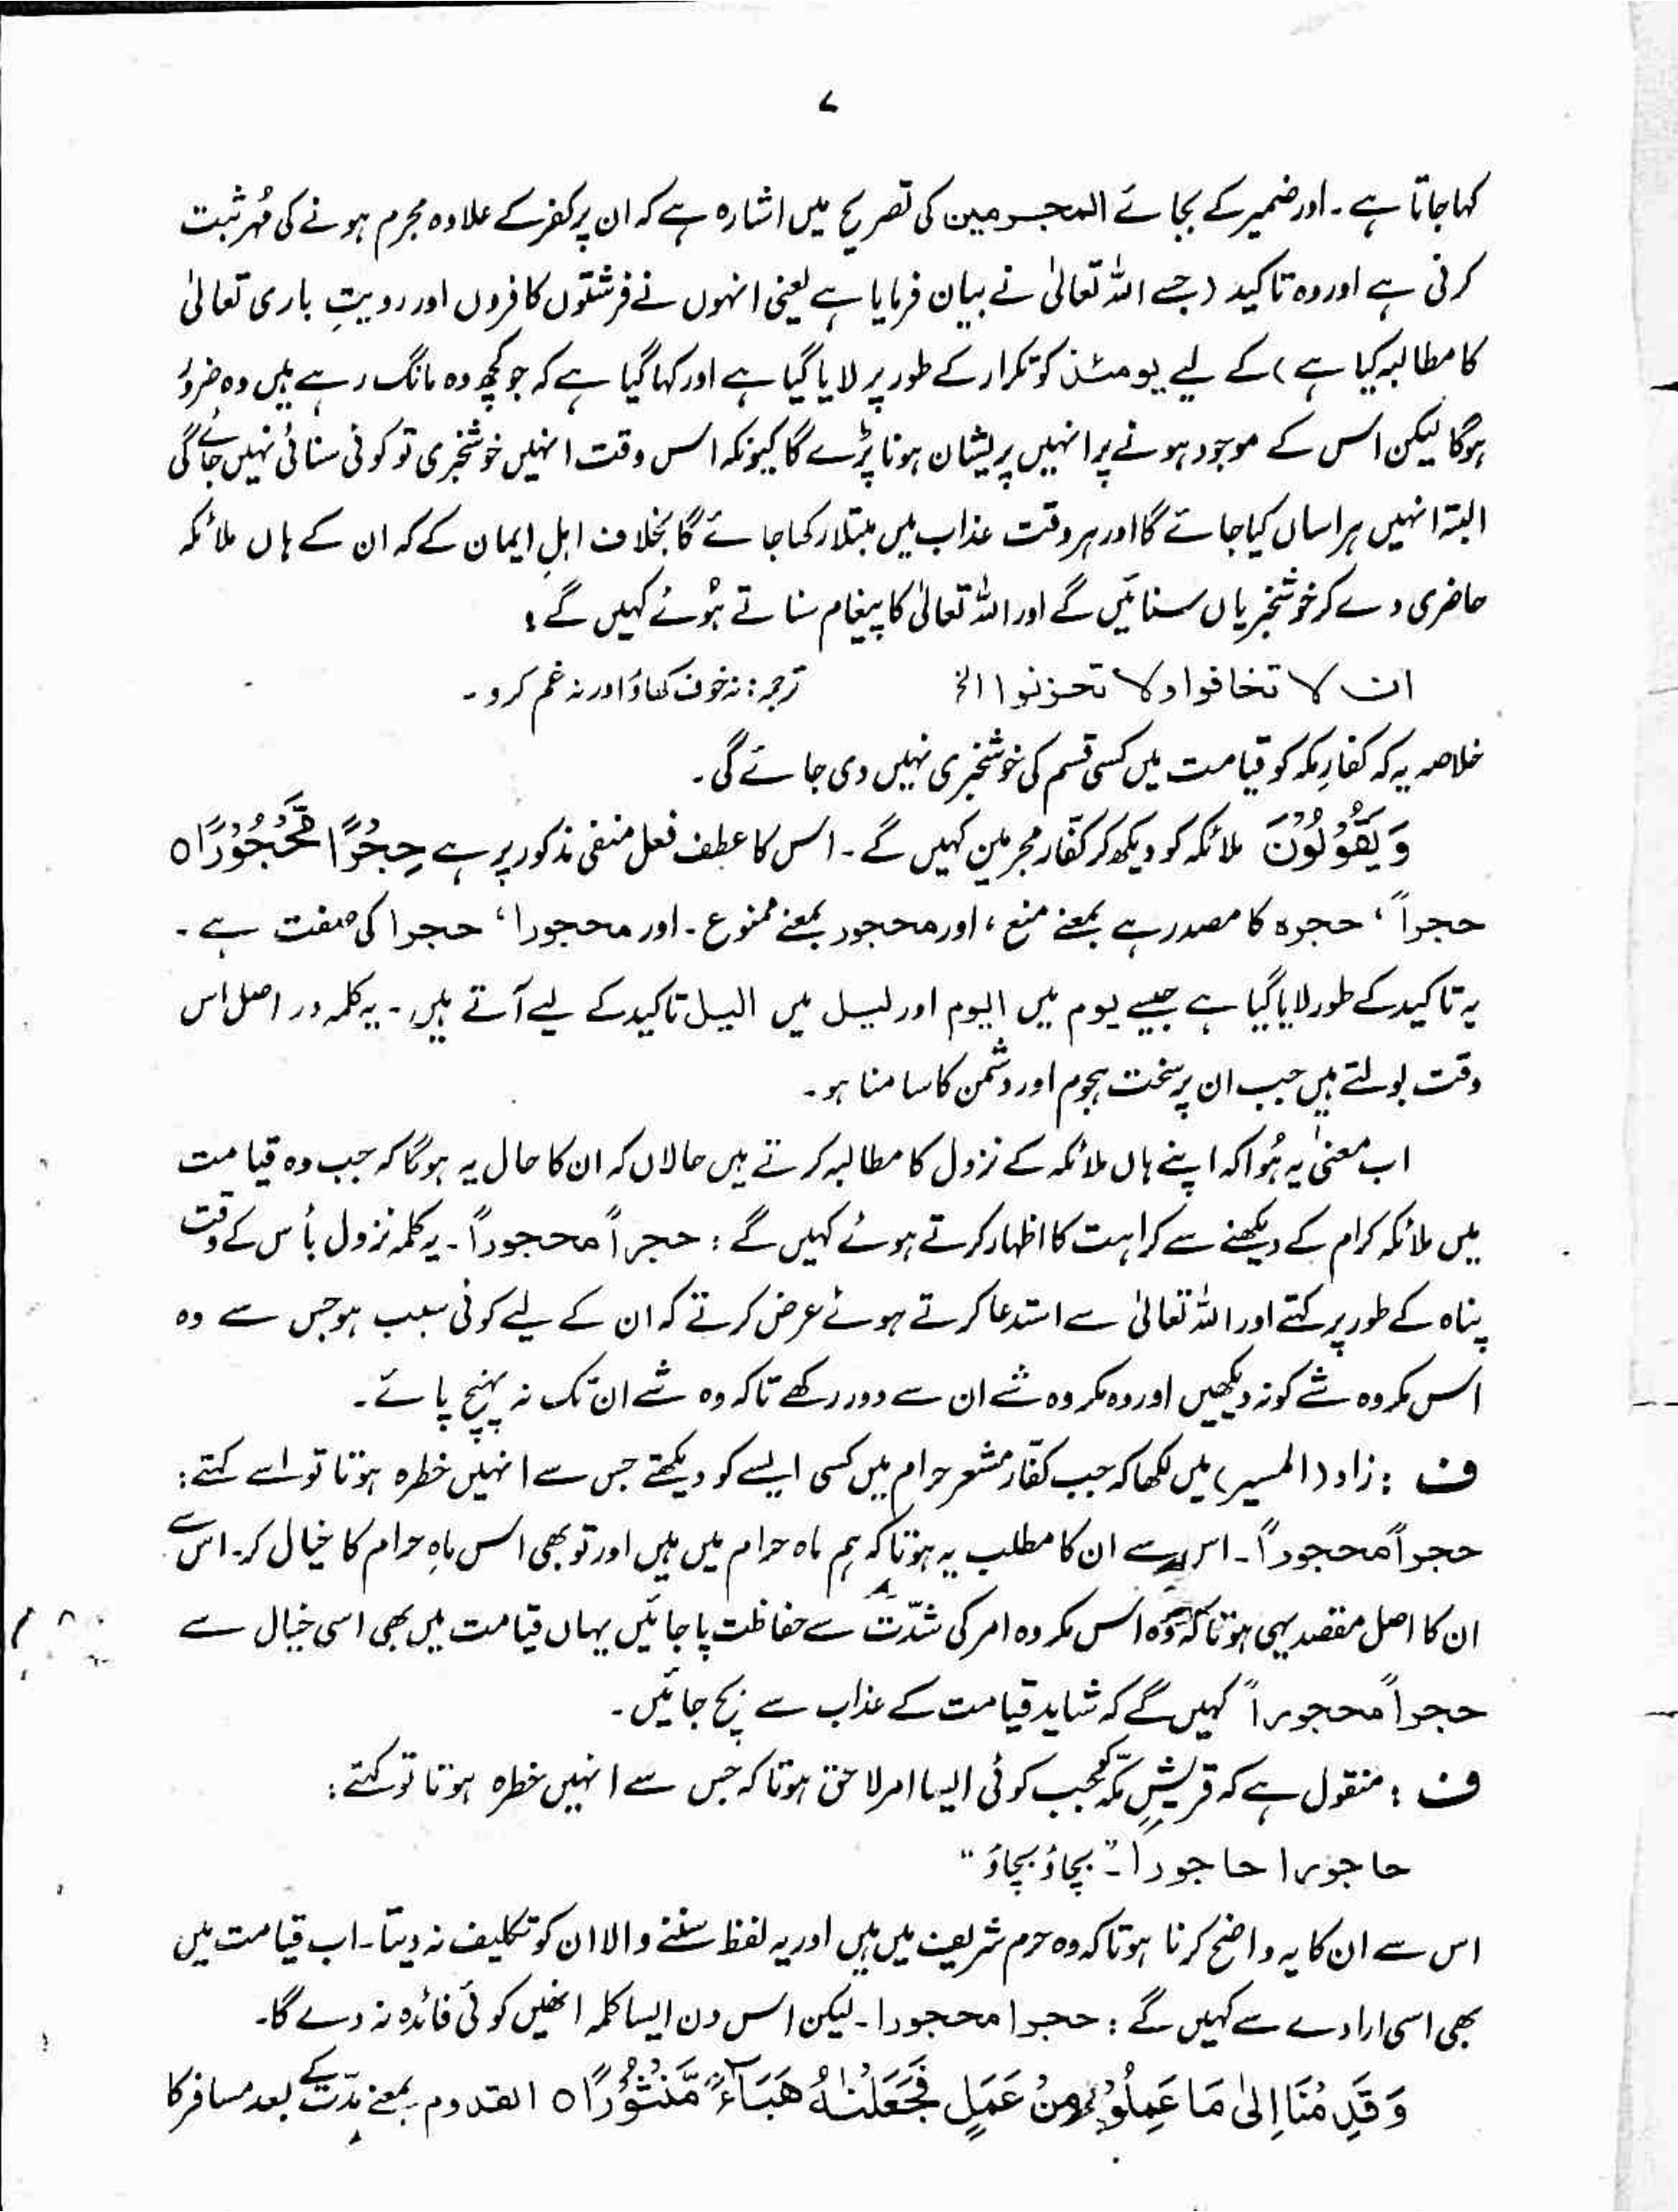 ۷
کہا جاتا ہے ۔ اور ضمیر کے بجائے المجرمین کی تصریح میں اشارہ ہے کہ ان پر کفر کے علاوہ مجرم ہونے کی مُہر ثبت
کرنی ہے اور وہ تاکید (جسے اللہ تعالیٰ نے بیان فرمایا ہے یعنی انہوں نے فرشتوں کافروں اور رویتِ باری تعالیٰ
کا مطالبہ کیا ہے) کے لیے یومئذ کو تکرار کے طور پر لایا گیا ہے اور کہا گیا ہے کہ جو کچھ وہ مانگ رہے ہیں وہ ضرور
ہوگا لیکن اس کے موجود ہونے پر انہیں پریشان ہونا پڑے گا کیونکہ اس وقت انہیں خوشخبری تو کوئی سنائی نہیں جائے گی
البتہ انہیں ہراساں کیا جائے گا اور ہر وقت عذاب میں مبتلا رکھا جائے گا بخلاف اہلِ ایمان کے کہ ان کے ہاں ملائکہ
حاضری دے کر خوشخبریاں سنائیں گے اور اللہ تعالیٰ کا پیغام سناتے ہُوئے کہیں گے :
ان لا تخافوا ولا تحزنوا الخ ترجمہ : نہ خوف کھاؤ اور نہ غم کرو ۔
خلاصہ یہ کہ کفارِ مکہ کو قیامت میں کسی قسم کی خوشخبری نہیں دی جائے گی ۔
وَيَقُوْلُوْنَ ملائکہ کو دیکھ کر کفّار مجرمین کہیں گے ۔ اس کا عطف فعل منفی مذکور پر ہے حِجْرًا مَّحْجُوْرًا ○
حجراً ، حجرہ کا مصدر ہے بمعنے منع ، اور محجور بمعنے ممنوع ۔ اور محجورا ، حجرا کی صفت ہے ۔
یہ تاکید کے طور لایا گیا ہے جیسے یوم میں الیوم اور لیل میں الیل تاکید کے لیے آتے ہیں ۔ یہ کلمہ در اصل اس
وقت بولتے ہیں جب ان پر سخت ہجوم اور دشمن کا سامنا ہو ۔
اب معنیٰ یہ ہُوا کہ اپنے ہاں ملائکہ کے نزول کا مطالبہ کرتے ہیں حالاں کہ ان کا حال یہ ہوگا کہ جب وہ قیامت
میں ملائکہ کرام کے دیکھنے سے کراہت کا اظہار کرتے ہوئے کہیں گے : حجراً محجوراً ۔ یہ کلمہ نزول بأس کے وقت
پناہ کے طور پر کہتے اور اللہ تعالیٰ سے استدعا کرتے ہوئے عرض کرتے کہ ان کے لیے کوئی سبب ہو جس سے وہ
اس مکروہ شے کو نہ دیکھیں اور وہ مکروہ شے ان سے دور رکھے تاکہ وہ شے ان تک نہ پہنچ پائے ۔
ف : زاد (المسیر) میں لکھا کہ جب کفّار مشعر حرام میں کسی ایسے کو دیکھتے جس سے انہیں خطرہ ہوتا تو اسے کہتے :
حجراً محجوراً ۔ اس سے ان کا مطلب یہ ہوتا کہ ہم ماہ حرام میں ہیں اور تو بھی اس ماہِ حرام کا خیال کر ۔ اس سے
ان کا اصل مقصد یہی ہوتا کہ وہ اس مکروہ امر کی شدّت سے حفاظت پا جائیں یہاں قیامت میں بھی اسی خیال سے
حجراً محجوراً کہیں گے کہ شاید قیامت کے عذاب سے بچ جائیں ۔
ف : منقول ہے کہ قریشِ مکّہ کو جب کوئی ایسا امر لاحق ہوتا کہ جس سے انہیں خطرہ ہوتا تو کہتے :
حاجورا حاجوراً ۔ " بچاؤ بچاؤ "
اس سے ان کا یہ واضح کرنا ہوتا کہ وہ حرم شریف میں ہیں اور یہ لفظ سننے والا ان کو تکلیف نہ دیتا ۔ اب قیامت میں
بھی اسی ارادے سے کہیں گے : حجرا محجورا ۔ لیکن اس دن ایسا کلمہ انھیں کوئی فائدہ نہ دے گا ۔
وَقَدِمْنَا اِلٰى مَا عَمِلُوْا مِنْ عَمَلٍ فَجَعَلْنٰهُ هَبَآءً مَّنْثُوْرًا ○ القدوم بمعنے مدّت کے بعد مسافر کا